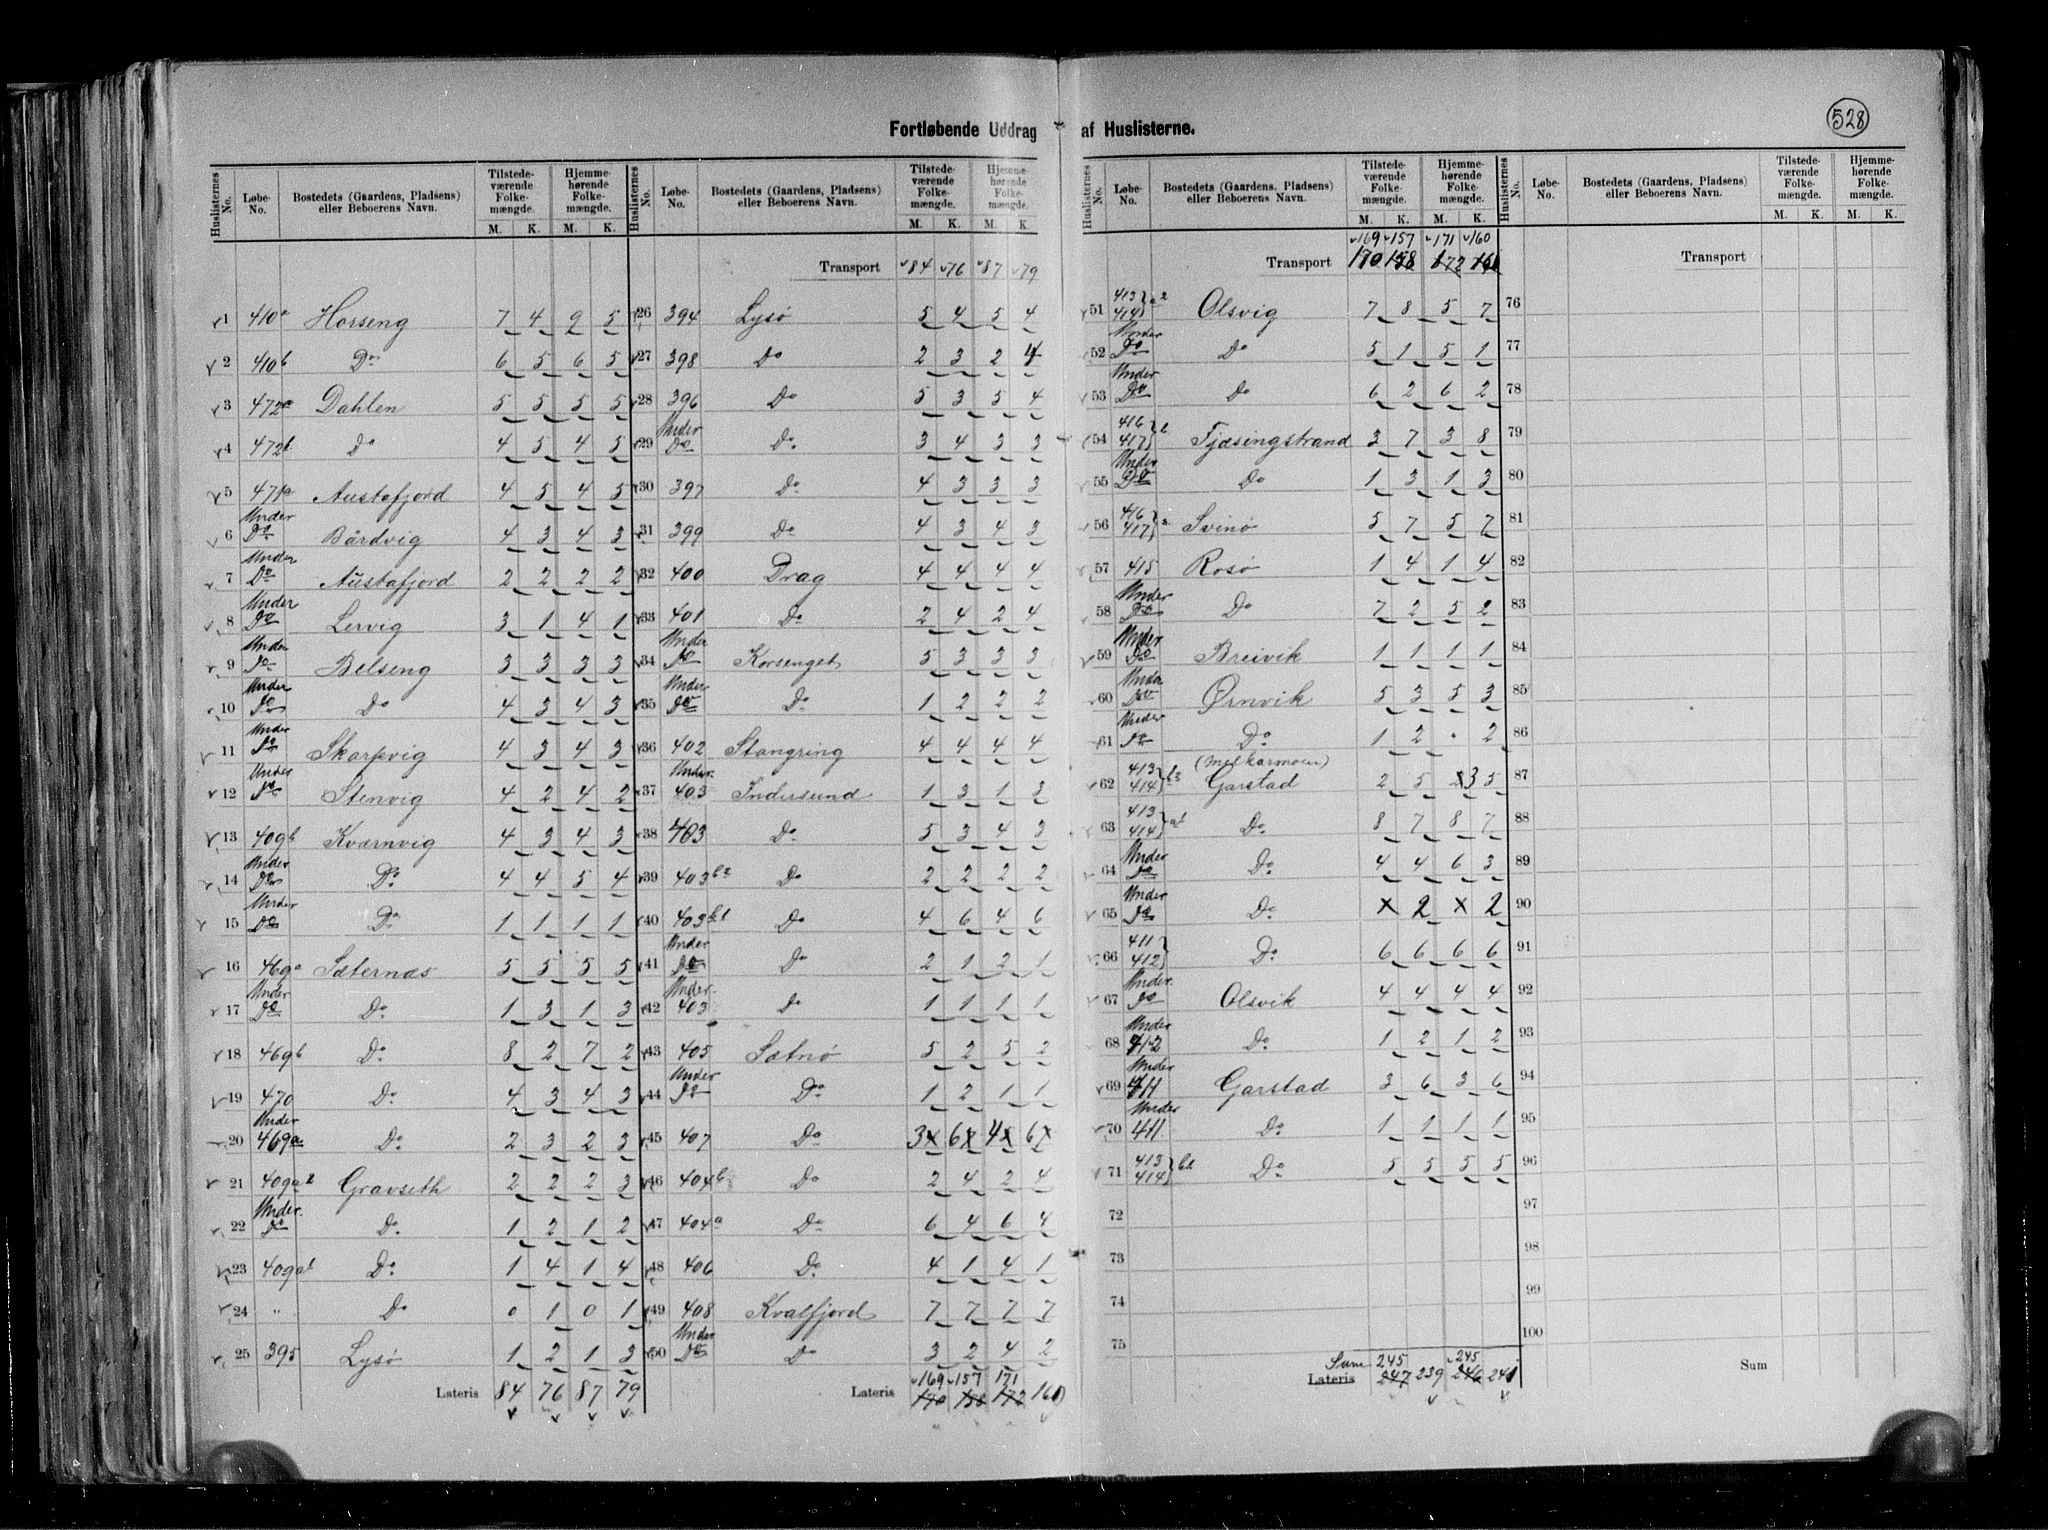 528
Fortløbende Uddrag af Huslisterne.
Huslisternes No. Løbe-No. Bostedets (Gaardens, Pladsens) eller Beboerens Navn. Tilstedeværende Folkemængde. M. K. Hjemmehørende Folkemængde. M. K.
1 410a Horseng 7 4 9 5
2 410b Do 6 5 6 5
3 472a Dahlen 5 5 5 5
4 472b Do 4 5 4 5
5 471a Austafjord 4 5 4 5
6 Under Do Bårdvig 4 3 4 3
7 Under Do Austafjord 2 2 2 2
8 Under Do Lervig 3 1 4 1
9 Under Do Belseng 3 3 3 3
10 Under Do Do 4 3 4 3
11 Under Do Skarpvig 4 3 4 3
12 Under Do Stenvig 4 2 4 2
13 409b Kværnvig 4 3 4 3
14 Under Do Do 4 4 5 4
15 Under Do Do 1 1 1 1
16 469a Sæternæs 5 5 5 5
17 Under Do Do 1 3 1 3
18 469b Do 8 2 7 2
19 470 Do 4 3 4 3
20 Under 469a Do 2 3 2 3
21 409a2 Gravseth 2 2 2 3
22 Under Do Do 1 2 1 2
23 409a1 Do 1 4 1 4
24 " Do 0 1 0 1
25 395 Lysø 1 2 1 3
Lateris 84 76 87 79
Huslisternes No. Løbe-No. Bostedets (Gaardens, Pladsens) eller Beboerens Navn. Tilstedeværende Folkemængde. M. K. Hjemmehørende Folkemængde. M. K.
Transport 84 76 87 79
26 394 Lysø 5 4 5 4
27 398 Do 2 3 2 4
28 396 Do 5 3 5 4
29 Under Do Do 3 4 3 3
30 397 Do 4 3 3 3
31 399 Do 4 3 4 3
32 400 Drag 4 4 4 4
33 401 Do 2 4 2 4
34 Under Do Korsenget 5 3 3 3
35 Under Do Do 1 2 2 2
36 402 Stangring 4 4 4 4
37 Under 403 Indersund 1 3 1 3
38 403 Do 5 3 4 3
39 403b2 Do 2 2 2 2
40 403b1 Do 4 6 4 6
41 Under Do Do 2 1 2 1
42 Under 403 Do 1 1 1 1
43 405 Sætnø 5 2 5 2
44 Under Do Do 1 2 1 1
45 407 Do 3x 6x 4x 6x
46 404b Do 2 4 2 4
47 404a Do 6 4 6 4
48 406 Do 4 1 4 1
49 408 Kvalfjord 7 7 7 7
50 Under Do Do 3 2 4 2
169 157 171
Lateris 170 158 172 160
Huslisternes No. Løbe-No. Bostedets (Gaardens, Pladsens) eller Beboerens Navn. Tilstedeværende Folkemængde. M. K. Hjemmehørende Folkemængde. M. K.
169 157 171 160
Transport 170 158 172 161
51 413 414 a2 Olsvig 7 8 5 7
52 Under Do Do 5 1 5 1
53 Under Do Do 6 2 6 2
54 416 417 b Tjæsingstrand 3 7 3 8
55 Under Do Do 1 3 1 3
56 416 417 a Svinø 5 7 5 7
57 415 Rosø 1 4 1 4
58 Under Do Do 7 2 5 2
59 Under Do Breivik 1 1 1 1
60 Under Do Ørnvik 5 3 5 3
61 Under Do Do 1 2 · 2
62 413 414 b2 (Melkarmoen) Garstad 2 5 3 5
63 413 414 a1 Do 8 7 8 7
64 Under Do Do 4 4 6 3
65 Under Do Do x 2 x 2
66 411 412 Do 6 6 6 6
67 Under Do Olsvik 4 4 4 4
68 Under 412 Do 1 2 1 2
69 Under 411 Garstad 3 6 3 6
70 Under 411 Do 1 1 1 1
71 413 414 b1 Do 5 5 5 5
72
73
74
75
Sum 245 245
Lateris 247 239 246 241
Huslisternes No. Løbe-No. Bostedets (Gaardens, Pladsens) eller Beboerens Navn. Tilstedeværende Folkemængde. M. K. Hjemmehørende Folkemængde. M. K.
Transport
76
77
78
79
80
81
82
83
84
85
86
87
88
89
90
91
92
93
94
95
96
97
98
99
100
Sum